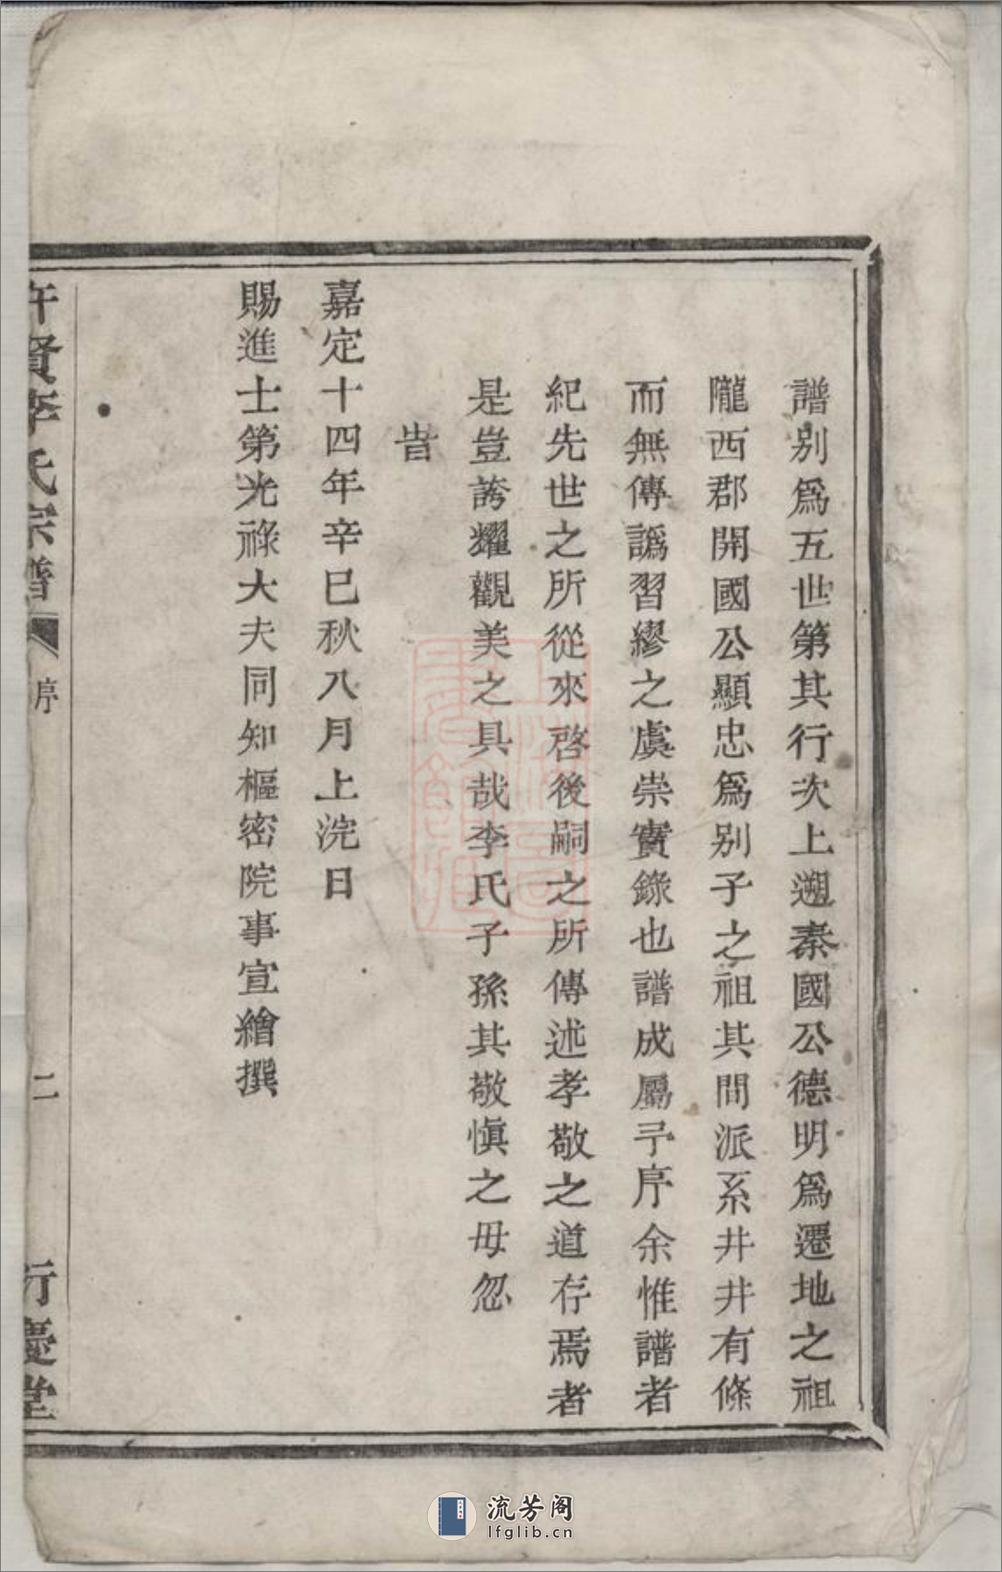 譜別爲五世第其行次上遡秦國公德明爲遷地之祖
隴西郡開國公顯忠爲別子之祖其間派系井井有條
而無傳譌習繆之虞崇實錄也譜成屬予序余惟譜者
紀先世之所從來啓後嗣之所傳述孝敬之道存焉者
是豈誇耀觀美之具哉李氏子孫其敬愼之毋忽
旹
嘉定十四年辛巳秋八月上浣日
賜進士第光祿大夫同知樞密院事宣繒撰
許賢李氏宗譜
序
二
行慶堂
流芳阁
lfglib.cn